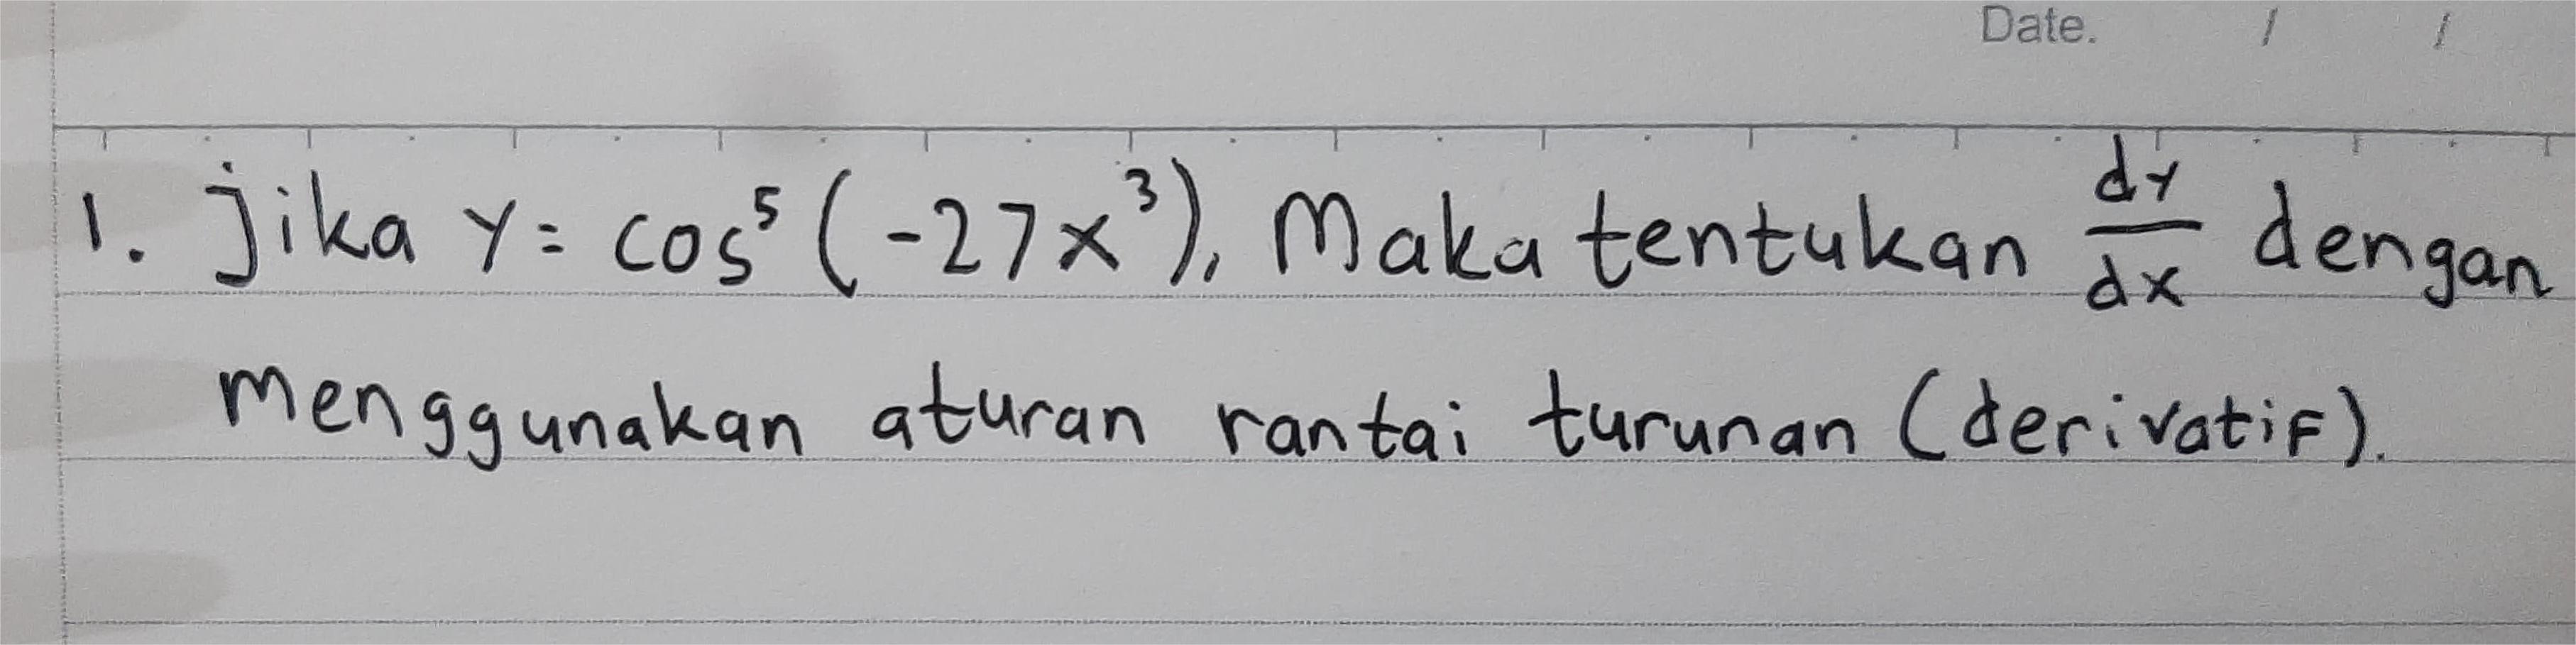 Date. / /
1. Jika y = cos⁵ (-27x³), Maka tentukan dy/dx dengan
menggunakan aturan rantai turunan (derivatif).